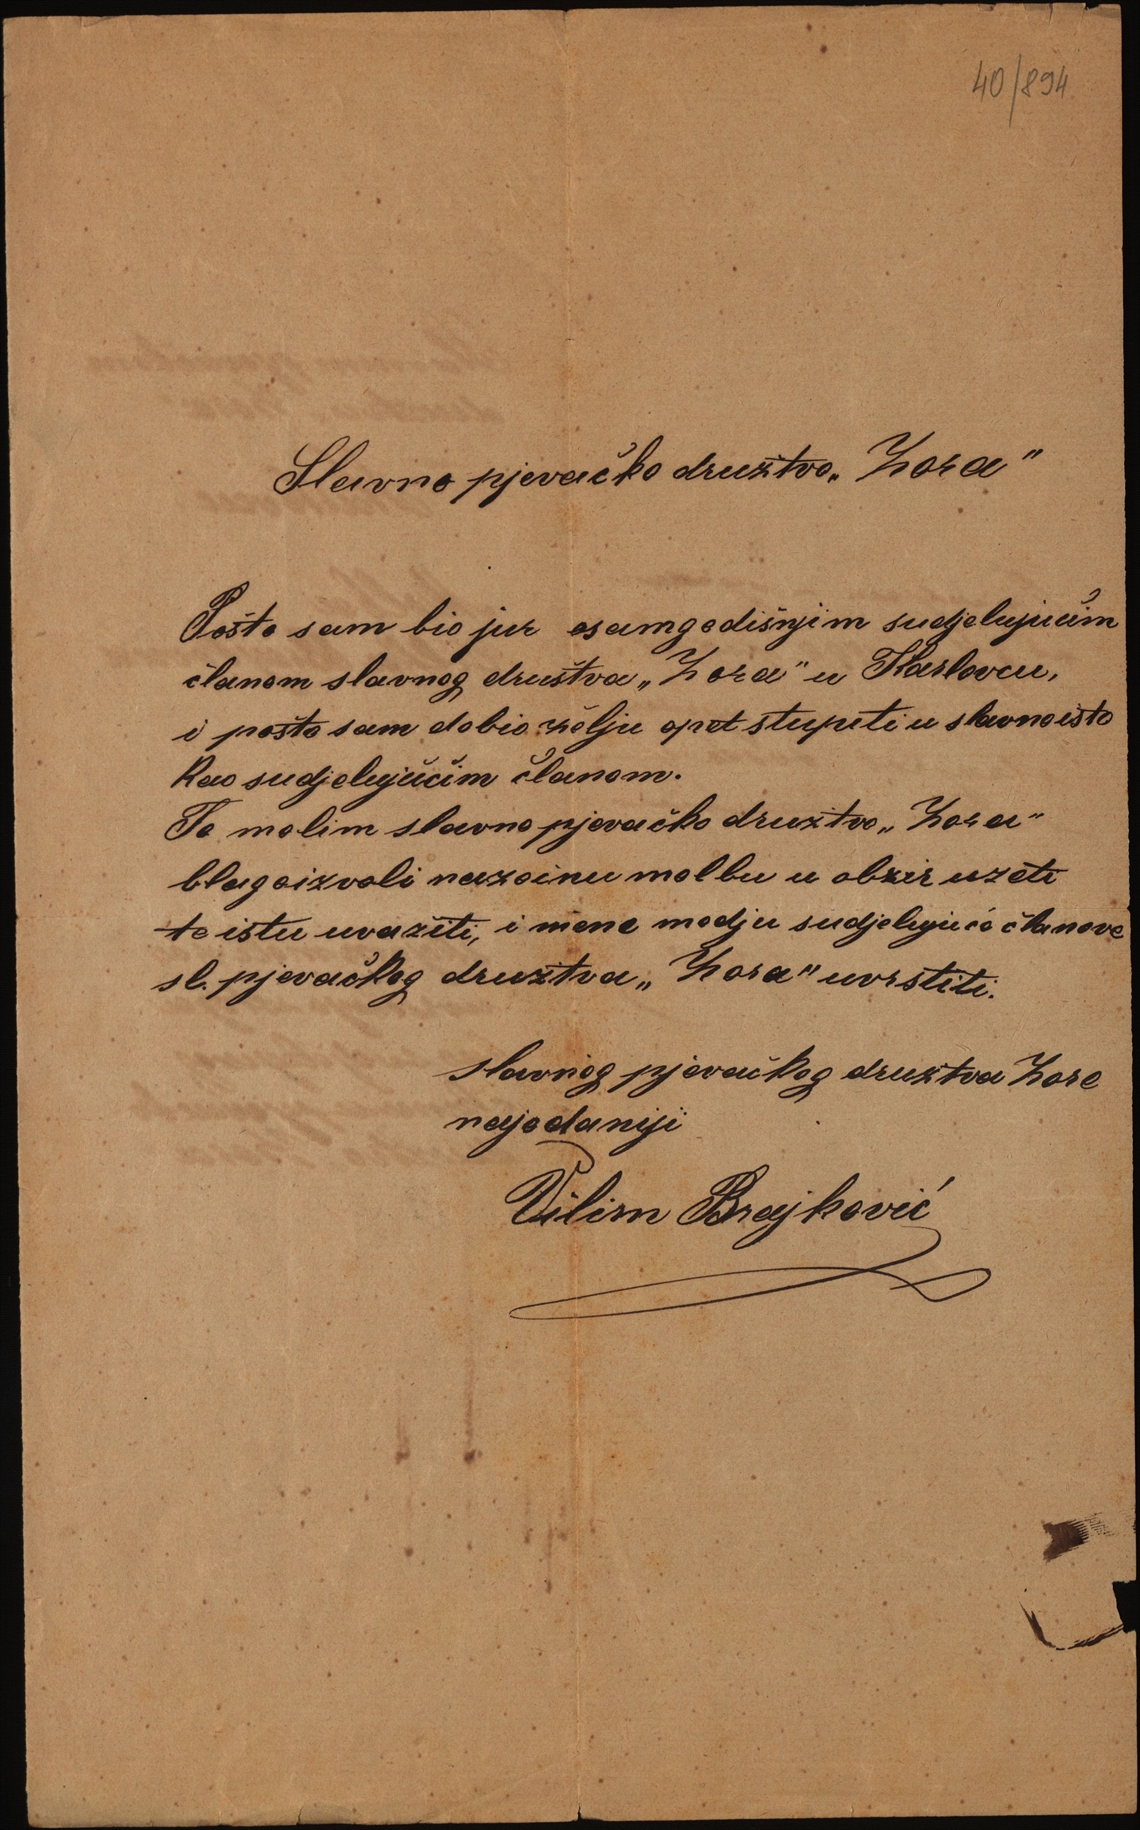 40/894
Slavno pjevačko družtvo „Zora"
Pošto sam bio jur osamgodišnjim sudjelujućim
članom slavnog društva „Zora" u Karlovcu,
i pošto sam dobio želju opet stupeti u slavno isto
kao sudjelujućim članom.
To molim slavno pjevačko družtvo „Zora"
blagoizvoli nazoinu molbu u obzir uzeti
te istu uvažiti, i mene medju sudjelujuće članove
sl. pjevačkog družtva „Zora" uvrstiti.
slavnog pjevačkog družtva Zore
najodaniji
Vilim Brajković